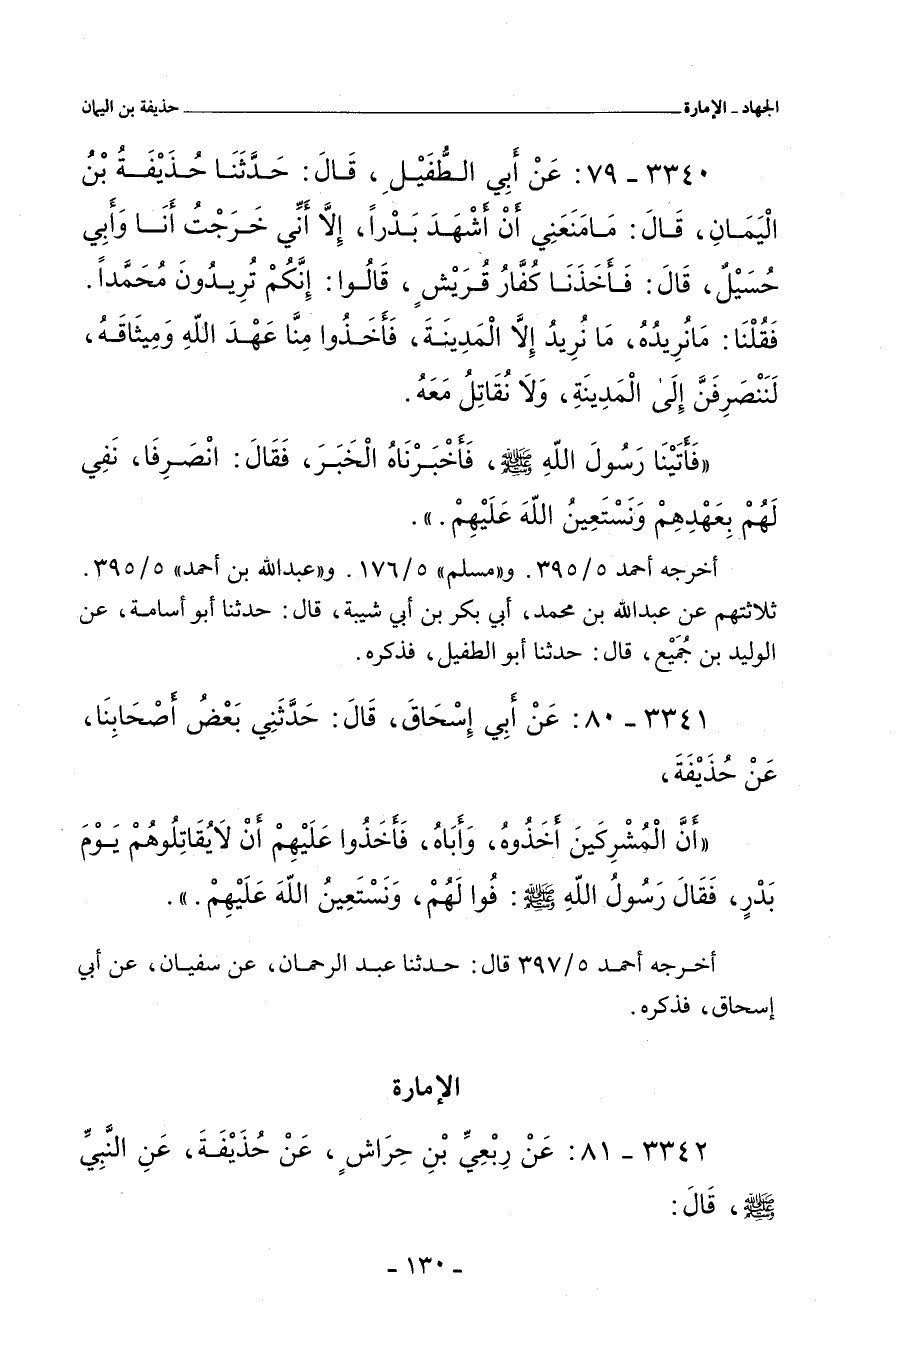 الجهاد ـ الإمارة ــــــ حذيفة بن اليمان
٣٣٤٠ ـ ٧٩: عَنْ أَبِي الطُّفَيْلِ، قَالَ: حَدَّثَنَا حُذَيْفَةُ بْنُ
الْيَمَانِ، قَالَ: مَامَنَعَنِي أَنْ أَشْهَدَ بَدْراً، إِلاَّ أَنِّي خَرَجْتُ أَنَا وَأَبِي
حُسَيْلٌ، قَالَ: فَأَخَذَنَا كُفَّارُ قُرَيْشٍ، قَالُوا: إِنَّكُمْ تُرِيدُونَ مُحَمَّداً.
فَقُلْنَا: مَانُرِيدُهُ، مَا نُرِيدُ إِلاَّ الْمَدِينَةَ، فَأَخَذُوا مِنَّا عَهْدَ اللّهِ وَمِيثَاقَهُ،
لَنَنْصَرِفَنَّ إِلَىٰ الْمَدِينَةِ، وَلَا نُقَاتِلُ مَعَهُ.
«فَأَتَيْنَا رَسُولَ اللّهِ ﷺ، فَأَخْبَرْنَاهُ الْخَبَرَ، فَقَالَ: انْصَرِفَا، نَفِي
لَهُمْ بِعَهْدِهِمْ وَنَسْتَعِينُ اللّهَ عَلَيْهِمْ.».
أخرجه أحمد ٣٩٥/٥. و«مسلم» ١٧٦/٥. و«عبدالله بن أحمد» ٣٩٥/٥.
ثلاثتهم عن عبدالله بن محمد، أبي بكر بن أبي شيبة، قال: حدثنا أبو أسامة، عن
الوليد بن جُمَيْع، قال: حدثنا أبو الطفيل، فذكره.
٣٣٤١ ـ ٨٠: عَنْ أَبِي إِسْحَاقَ، قَالَ: حَدَّثَنِي بَعْضُ أَصْحَابِنَا،
عَنْ حُذَيْفَةَ،
«أَنَّ الْمُشْرِكِينَ أَخَذُوهُ، وَأَبَاهُ، فَأَخَذُوا عَلَيْهِمْ أَنْ لَايُقَاتِلُوهُمْ يَوْمَ
بَدْرٍ، فَقَالَ رَسُولُ اللّهِ ﷺ: فُوا لَهُمْ، وَنَسْتَعِينُ اللّهَ عَلَيْهِمْ.».
أخرجه أحمد ٣٩٧/٥ قال: حدثنا عبد الرحمان، عن سفيان، عن أبي
إسحاق، فذكره.
الإمارة
٣٣٤٢ ـ ٨١: عَنْ رِبْعِيِّ بْنِ حِرَاشٍ، عَنْ حُذَيْفَةَ، عَنِ النَّبِيِّ
ﷺ، قَالَ:
ـ ١٣٠ ـ